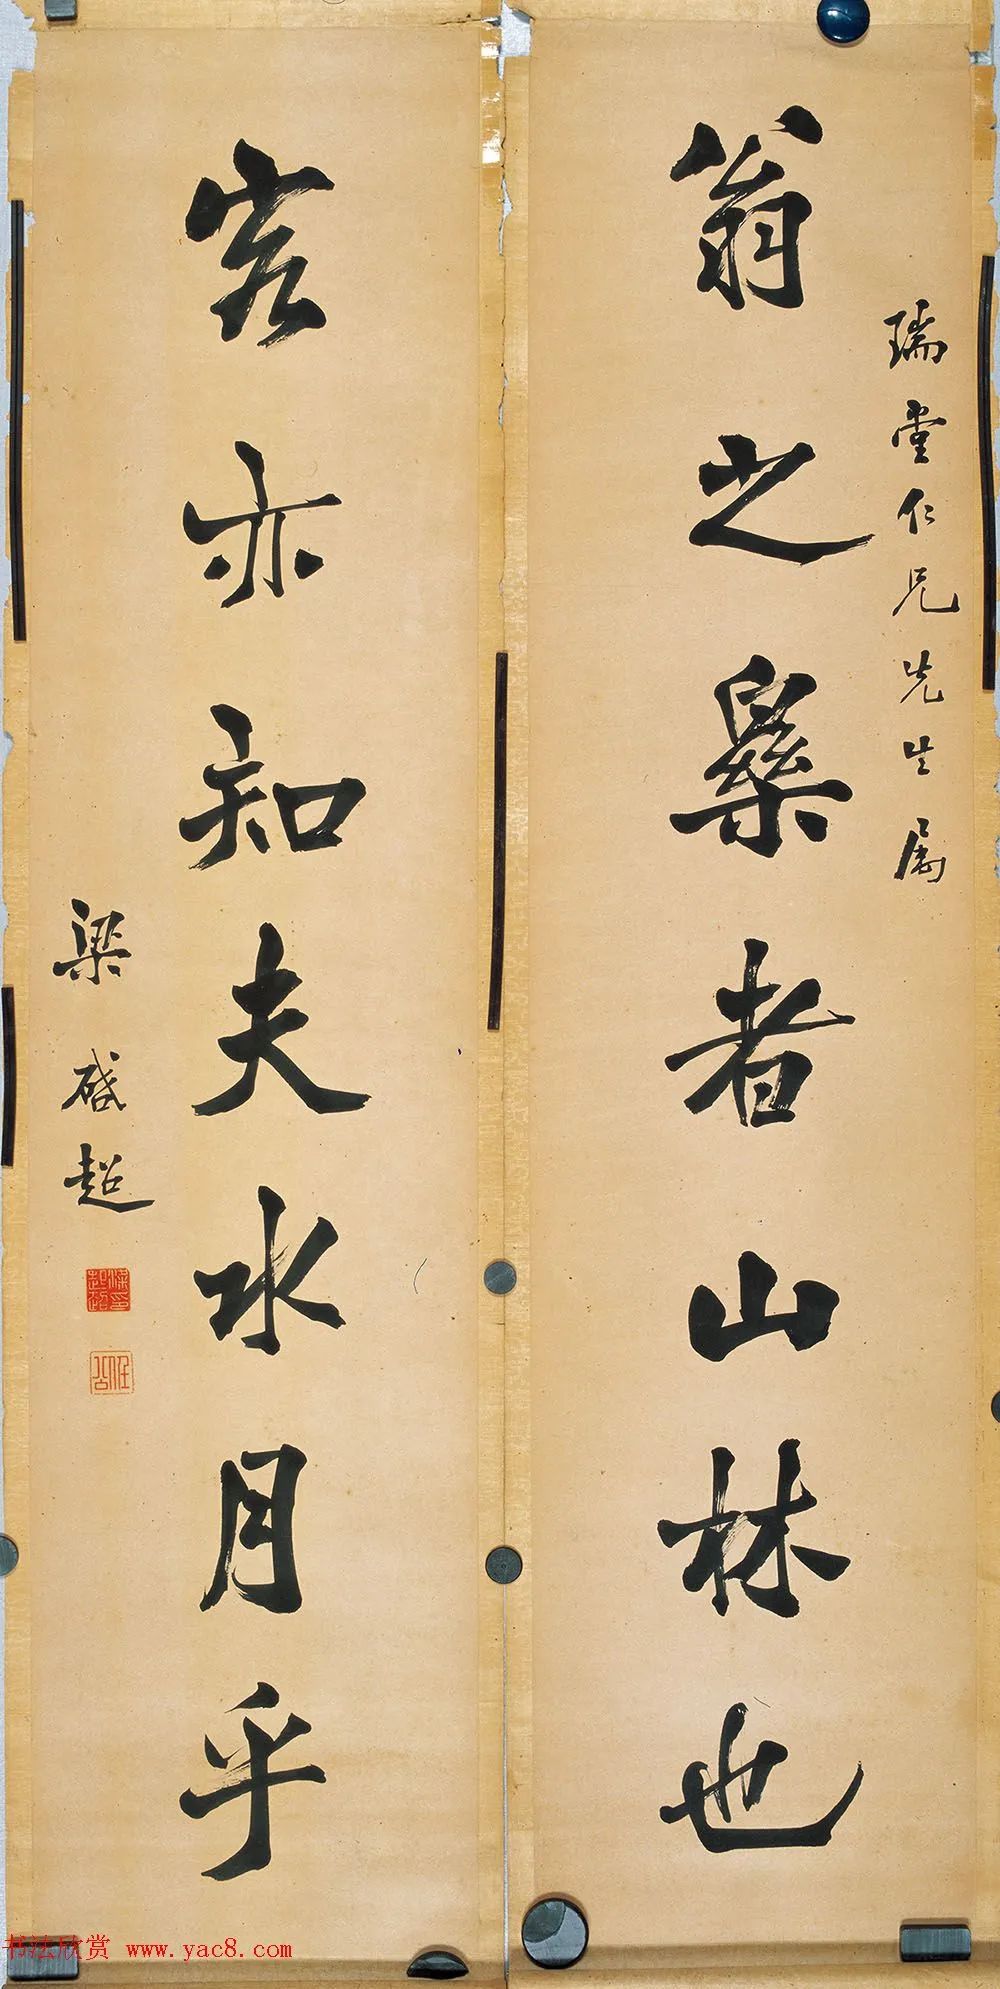 瑞堂仁兄先生属
翁之樂者山林也
客亦知夫水月乎
梁啟超
梁启超印
任公
书法欣赏 www.yac8.com